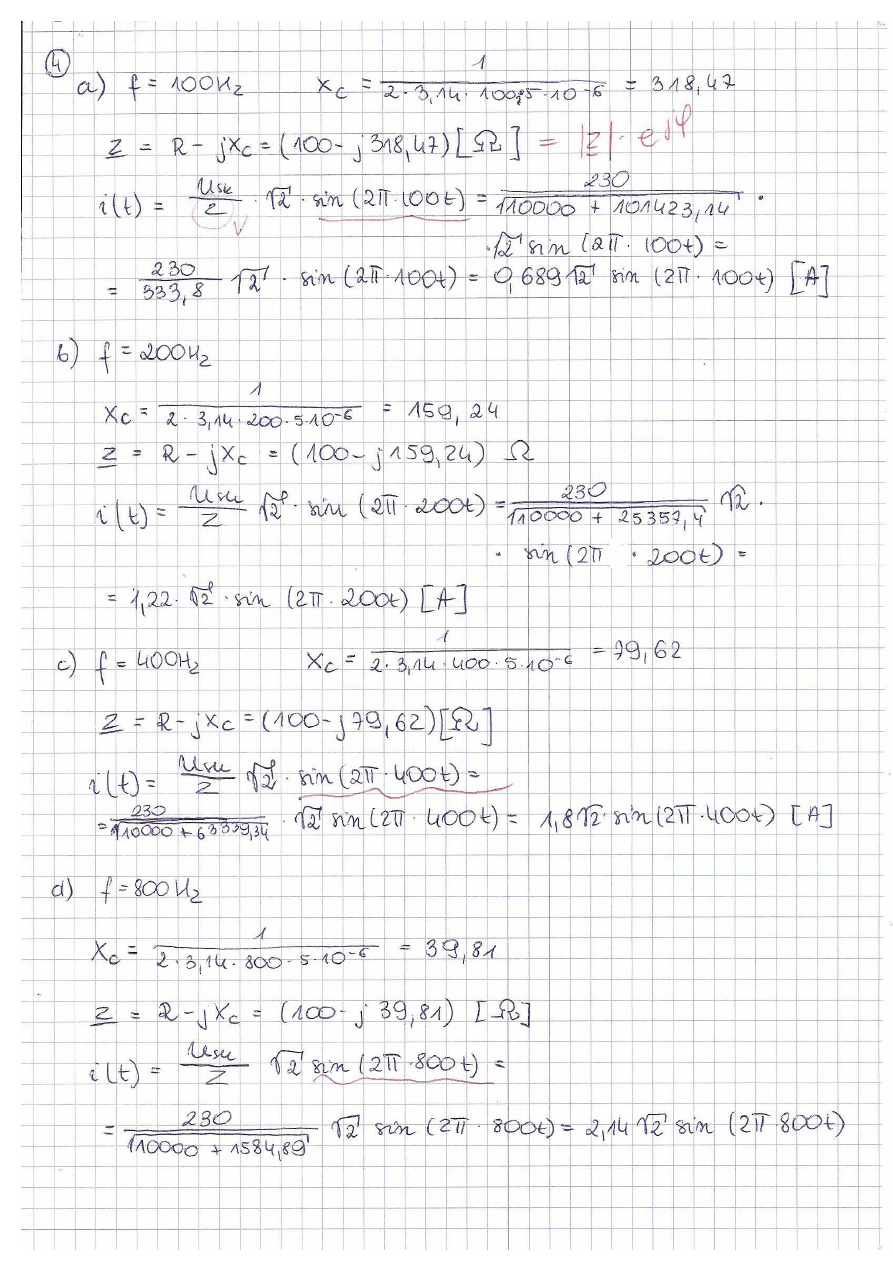 ④
a) f = 100Hz    Xc = 1 / (2 · 3,14 · 100 · 5 · 10^-6) = 318,47
Z = R - jXc = (100 - j318,47) [Ω] = |Z| · e^jφ
i(t) = Usk / Z · √2 · sin (2π · 100t) = 230 / √(10000 + 101423,14) ·
· √2 sin (2π · 100t) =
= 230 / 333,8 √2 · sin (2π · 100t) = 0,689 √2 sin (2π · 100t) [A]
b) f = 200Hz
Xc = 1 / (2 · 3,14 · 200 · 5 · 10^-6) = 159,24
Z = R - jXc = (100 - j159,24) Ω
i(t) = Usk / Z √2 · sin (2π · 200t) = 230 / √(10000 + 25357,4) √2 ·
· sin (2π · 200t) =
= 1,22 · √2 · sin (2π · 200t) [A]
c) f = 400Hz    Xc = 1 / (2 · 3,14 · 400 · 5 · 10^-6) = 79,62
Z = R - jXc = (100 - j79,62) [Ω]
i(t) = Usk / Z √2 · sin (2π · 400t) =
= 230 / √(10000 + 6339,34) · √2 sin (2π · 400t) = 1,8 √2 · sin (2π · 400t) [A]
d) f = 800Hz
Xc = 1 / (2 · 3,14 · 800 · 5 · 10^-6) = 39,81
Z = R - jXc = (100 - j 39,81) [Ω]
i(t) = Usk / Z √2 sin (2π · 800t) =
= 230 / √(10000 + 1584,89) √2 sin (2π · 800t) = 2,14 √2 sin (2π 800t)